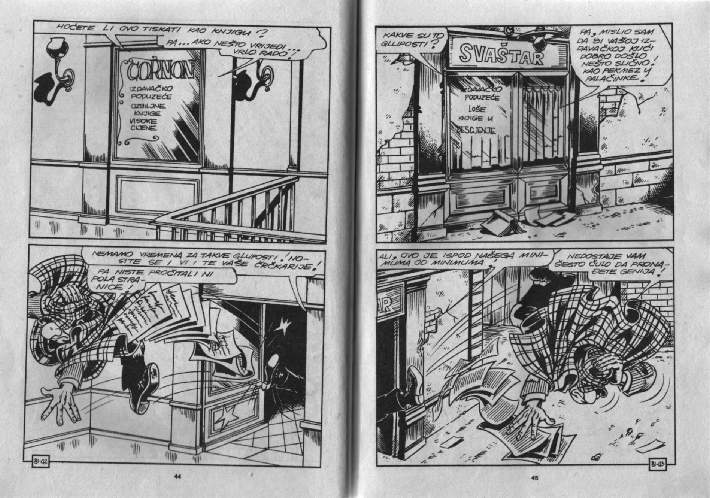 HOĆETE LI OVO TISKATI KAO KNJIGU?
PA... AKO NEŠTO VRIJEDI,
VRLO RADO!
ČORNON
IZDAVAČKO
PODUZEĆE
OZBILJNE
KNJIGE
VISOKE
CIJENE
NEMAMO VREMENA ZA TAKVE GLUPOSTI! NO-
SITE SE I VI I TE VAŠE ČRČKARIJE!
PA NISTE PROČITALI NI
POLA STRA-
NICE!
81-02
44
KAKVE SU TO
GLUPOSTI?
PA, MISLIO SAM
DA BI VAŠOJ IZ-
DAVAČKOJ KUĆI
DOBRO DOŠLO
NEŠTO SLIČNO!
KAO PEKMEZ U
PALAČINKE.
SVAŠTAR
IZDAVAČKO
PODUZEĆE
LOŠE
KNJIGE U
BESCJENJE
ALI, OVO JE ISPOD NAŠEGA MINI-
MUMA OD MINIMUMA
NEDOSTAJE VAM
ŠESTO ČULO DA PRONA-
ĐETE GENIJA!
AR
81-03
45